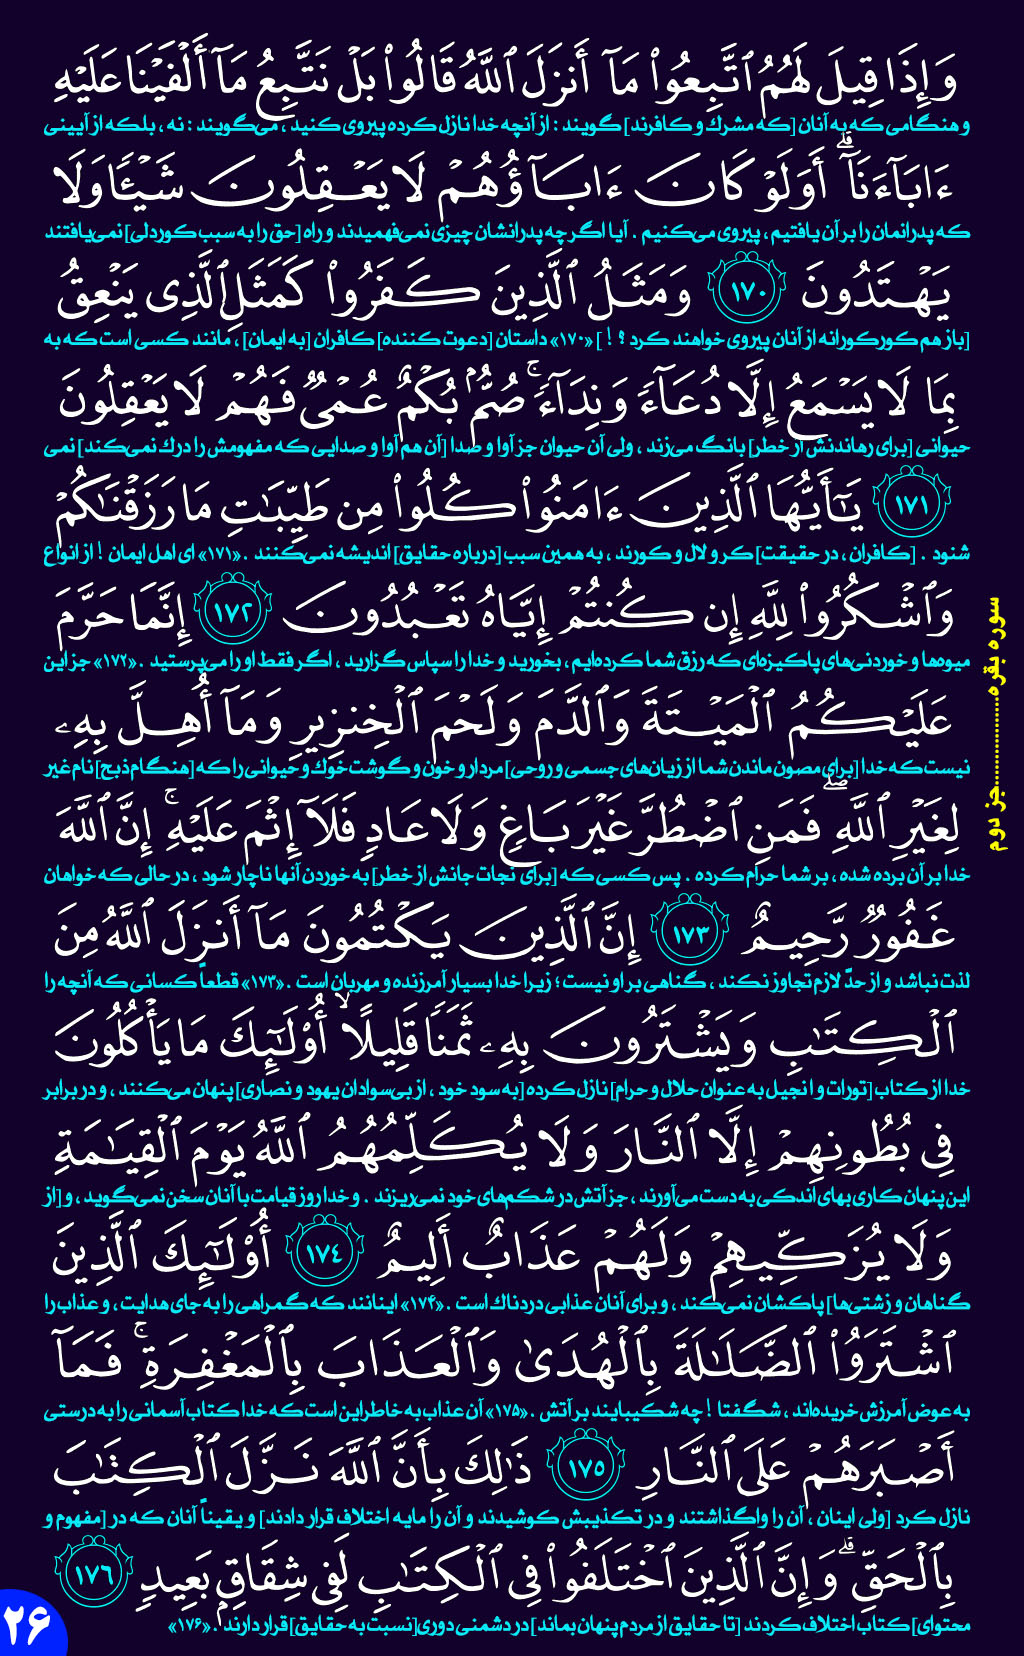 وَإِذَا قِيلَ لَهُمُ ٱتَّبِعُوا۟ مَآ أَنزَلَ ٱللَّهُ قَالُوا۟ بَلْ نَتَّبِعُ مَآ أَلْفَيْنَا عَلَيْهِ
و هنگامی که به آنان [که مشرك و کافرند] گویند : از آنچه خدا نازل کرده پیروی کنید ، می‌گویند : نه ، بلکه از آیینی
ءَابَآءَنَآ ۗ أَوَلَوْ كَانَ ءَابَآؤُهُمْ لَا يَعْقِلُونَ شَيْـًٔا وَلَا
که پدرانمان را بر آن یافتیم ، پیروی می‌کنیم . آیا اگر چه پدرانشان چیزی نمی‌فهمیدند و راه [حق را به سبب کوردلی] نمی‌یافتند
يَهْتَدُونَ ١٧٠ وَمَثَلُ ٱلَّذِينَ كَفَرُوا۟ كَمَثَلِ ٱلَّذِى يَنْعِقُ
[باز هم کورکورانه از آنان پیروی خواهند کرد ؟ ! ] «۱۷۰» داستان [دعوت کننده] کافران [به ایمان] ، مانند کسی است که به
بِمَا لَا يَسْمَعُ إِلَّا دُعَآءً وَنِدَآءً ۚ صُمٌّۢ بُكْمٌ عُمْىٌ فَهُمْ لَا يَعْقِلُونَ
حیوانی [برای رهاندنش از خطر] بانگ می‌زند ، ولی آن حیوان جز آوا و صدا [آن هم آوا و صدایی که مفهومش را درك نمی‌کند] نمی
١٧١ يَـٰٓأَيُّهَا ٱلَّذِينَ ءَامَنُوا۟ كُلُوا۟ مِن طَيِّبَـٰتِ مَا رَزَقْنَـٰكُمْ
شنود . [کافران ، در حقیقت] کر و لال و کورند ، به همین سبب [درباره حقایق] اندیشه نمی‌کنند . «۱۷۱» ای اهل ایمان ! از انواع
وَٱشْكُرُوا۟ لِلَّهِ إِن كُنتُمْ إِيَّاهُ تَعْبُدُونَ ١٧٢ إِنَّمَا حَرَّمَ
میوه‌ها و خوردنی‌های پاکیزه‌ای که رزق شما کرده‌ایم ، بخورید و خدا را سپاس گزارید ، اگر فقط او را می‌پرستید . «۱۷۲» جز این
عَلَيْكُمُ ٱلْمَيْتَةَ وَٱلدَّمَ وَلَحْمَ ٱلْخِنزِيرِ وَمَآ أُهِلَّ بِهِۦ
نیست که خدا [برای مصون ماندن شما از زیان‌های جسمی و روحی] مردار و خون و گوشت خوك و حیوانی را که [هنگام ذبح] نام غیر
لِغَيْرِ ٱللَّهِ ۖ فَمَنِ ٱضْطُرَّ غَيْرَ بَاغٍ وَلَا عَادٍ فَلَآ إِثْمَ عَلَيْهِ ۚ إِنَّ ٱللَّهَ
خدا بر آن برده شده ، بر شما حرام کرده . پس کسی که [برای نجات جانش از خطر] به خوردن آنها ناچار شود ، در حالی که خواهان
غَفُورٌ رَّحِيمٌ ١٧٣ إِنَّ ٱلَّذِينَ يَكْتُمُونَ مَآ أَنزَلَ ٱللَّهُ مِنَ
لذت نباشد و از حدّ لازم تجاوز نکند ، گناهی بر او نیست ؛ زیرا خدا بسیار آمرزنده و مهربان است . «۱۷۳» قطعاً کسانی که آنچه را
ٱلْكِتَـٰبِ وَيَشْتَرُونَ بِهِۦ ثَمَنًا قَلِيلًا ۙ أُو۟لَـٰٓئِكَ مَا يَأْكُلُونَ
خدا از کتاب [تورات و انجیل به عنوان حلال و حرام] نازل کرده [به سود خود ، از بی‌سوادان یهود و نصاری] پنهان می‌کنند ، و در برابر
فِى بُطُونِهِمْ إِلَّا ٱلنَّارَ وَلَا يُكَلِّمُهُمُ ٱللَّهُ يَوْمَ ٱلْقِيَـٰمَةِ
این پنهان کاری بهای اندکی به دست می‌آورند ، جز آتش در شکم‌های خود نمی‌ریزند . و خدا روز قیامت با آنان سخن نمی‌گوید ، و [از
وَلَا يُزَكِّيهِمْ وَلَهُمْ عَذَابٌ أَلِيمٌ ١٧٤ أُو۟لَـٰٓئِكَ ٱلَّذِينَ
گناهان و زشتی‌ها] پاکشان نمی‌کند ، و برای آنان عذابی دردناك است . «۱۷۴» اینانند که گمراهی را به جای هدایت ، و عذاب را
ٱشْتَرَوُا۟ ٱلضَّلَـٰلَةَ بِٱلْهُدَىٰ وَٱلْعَذَابَ بِٱلْمَغْفِرَةِ ۚ فَمَآ
به عوض آمرزش خریده‌اند ، شگفتا ! چه شکیبایند بر آتش . «۱۷۵» آن عذاب به خاطر این است که خدا کتاب آسمانی را به درستی
أَصْبَرَهُمْ عَلَى ٱلنَّارِ ١٧٥ ذَٰلِكَ بِأَنَّ ٱللَّهَ نَزَّلَ ٱلْكِتَـٰبَ
نازل کرد [ولی اینان ، آن را واگذاشتند و در تکذیبش کوشیدند و آن را مایه اختلاف قرار دادند] و یقیناً آنان که در [مفهوم و
بِٱلْحَقِّ ۗ وَإِنَّ ٱلَّذِينَ ٱخْتَلَفُوا۟ فِى ٱلْكِتَـٰبِ لَفِى شِقَاقٍۭ بَعِيدٍ ١٧٦
محتوای] کتاب اختلاف کردند [تا حقایق از مردم پنهان بماند] در دشمنی دوری [نسبت به حقایق] قرار دارند . «۱۷۶»
سوره بقره................جز دوم
۲۶